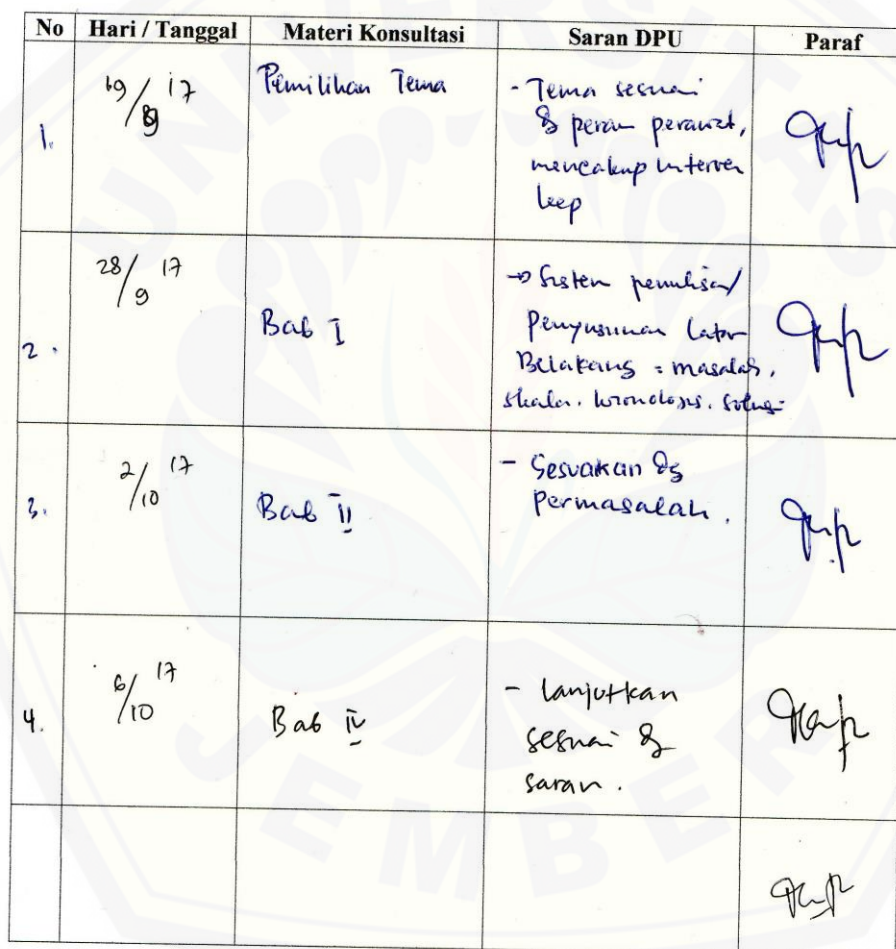 No Hari / Tanggal Materi Konsultasi Saran DPU Paraf
1. 19/9 17 Pemilihan Tema - Tema sesuai
dg peran perawat,
mencakup interven
kep
2. 28/9 17 Bab I → Sistem penulisan/
Penyusunan Latar
Belakang = masalah,
skala, kronologis, solusi
3. 2/10 17 Bab II - Sesuaikan dg
Permasalah.
4. 6/10 17 Bab IV - lanjutkan
sesuai dg
saran.
UNIVERSITAS
JEMBER